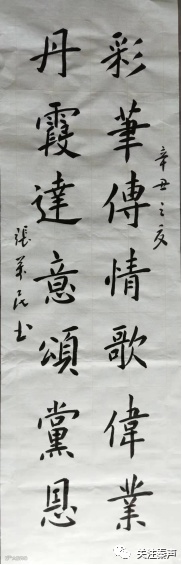 辛丑之夏
彩筆傳情歌偉業
丹霞達意頌黨恩
張書
关注秦声